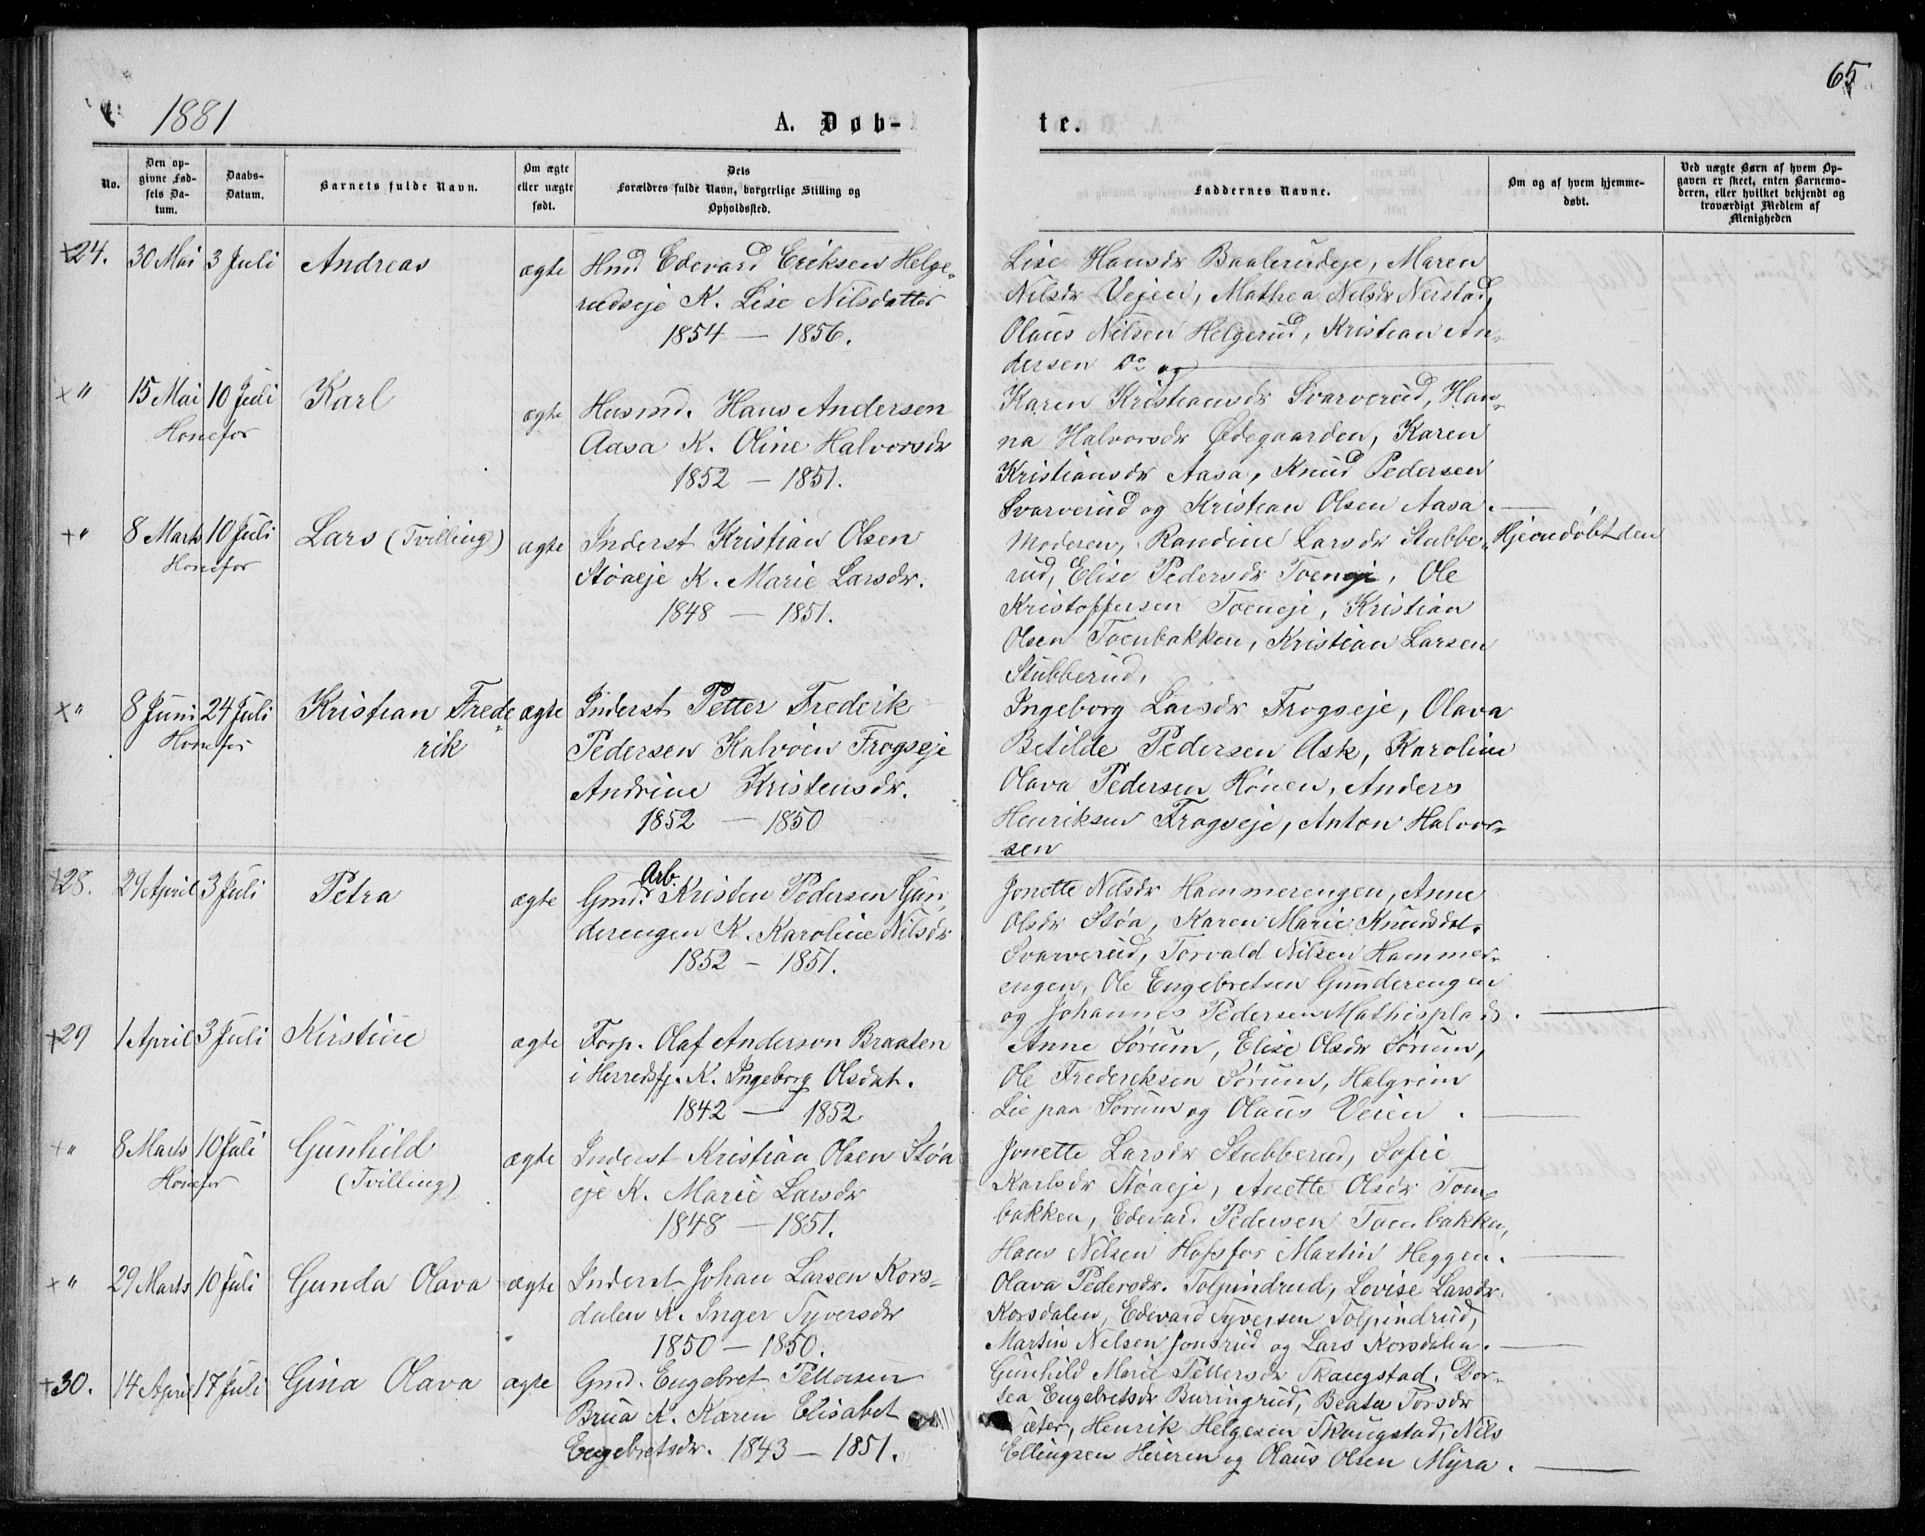 1881
65
A. Døb-
te.
No.
Den op-
givne Fød-
sels Da-
tum.
Daabs-
Datum.
Barnets fulde Navn.
Om ægte
eller uægte
født.
Dets
Forældres fulde Navn, borgerlige Stilling og
Opholdssted.
Faddernes Navne.
Om og af hvem hjemme-
døbt.
Ved uægte Børn af hvem Op-
gaven er skeet, enten Barnemo-
deren, eller hvilket bekjendt og
troværdigt Medlem af
Menigheden
+24. 30 Mai 3 Juli Andreas ægte
Hmd Edevard Eriksen Helge-
rudseje K. Lise Nilsdatter
1854 — 1856.
Lise Hansdr Baalerudeje, Maren
Nilsdr Vejen, Mathea Nilsdr Nerstad,
Olaus Nilsen Helgerud, Kristian An-
dersen Do og
+ " 15 Mai 10 Juli Karl ægte
Honefos
Husmd. Hans Andersen
Aasa K. Oline Halvorsdr
1852 — 1851.
Karen Kristiansdr Svarverud, Han-
na Halvorsdr Ødegaarden, Karen
Kristiansdr Aasa, Knud Pedersen
Svarverud og Kristian Olsen Aasa.
+ " 8 Marts 10 Juli Lars (Tvilling) ægte
Honefos
Inderst Kristian Olsen
Støaeje K. Marie Larsdr.
1848 — 1851.
Moderen, Randine Larsdr Stubbe-
rud, Elise Pedersdr Toeneje, Ole
Kristoffersen Toeneje, Kristian
Olsen Toenbakken, Kristian Larsen
Stubberud.
Hjemdøbt den
+ " 8 Juni 24 Juli Kristian Frede-
rik ægte
Honefos
Inderst Petter Frederik
Pedersen Kalvøen Frogseje
Andrine Kristensdr.
1852 — 1850
Ingeborg Larsdr Frogseje, Olava
Betilde Pedersen Ask, Karoline
Olava Pedersen Hønen, Anders
Henriksen Frogseje, Anton Halvor-
sen
+28. 24 April 3 Juli Petra ægte
Arb.
Gmd. Kristen Pedersen Gun-
derengen K. Karoline Nilsdr
1852 — 1851.
Jonette Nilsdr Hammerengen, Anne
Olsdr Støa, Karen Marie Knudsdat.
Svarverud, Torvald Nilsen Hammer-
engen, Ole Engebretsen Gunderengen
og Johannes Pedersen Mathisplads.
+29 1 April 3 Juli Kirstine ægte
Forp. Olaf Anderson Braaten
i Herredsfj. K. Ingeborg Olsdat.
1842 — 1852
Anne Sørum, Elise Olsdr Sørum,
Ole Frederiksen Sørum, Halgrim
Lie paa Sørum og Olaus Veien.
+ " 8 Marts 10 Juli Gunhild ægte
Honefos (Tvilling)
Inderst Kristian Olsen Støa
eje K. Marie Larsdr
1848 — 1851.
Jonette Larsdr Stubberud, Sofie
Karlsdr Støaeje, Anette Olsdr Toen-
bakken, Edevard Pedersen Toenbakken,
Hans Nilsen Hofsfos Martin Heggen.
+ " 29 Marts 10 Juli Gunda Olava ægte
Inderst Johan Larsen Kors-
dalen K. Inger Tyversdr
1850 — 1850.
Olava Pedersdr. Tolpindrud, Lovise Larsdr
Korsdalen, Edevard Tyversen Tolpindrud,
Martin Nelsen Jonsrud og Lars Korsdalen.
+30. 14 April 17 Juli Gina Olava ægte
Gmd. Engebret Pettersen
Brua K. Karen Elisabet
Engebretsdr. 1843 — 1851.
Gunhild Marie Pettersdr Skaugstad, Dor-
tea Engebretsdr Buringrud, Beate Torsdr
æter, Henrik Helgesen Skaugstad, Nils
Ellingsen Heieren og Olaus Olsen Myra.